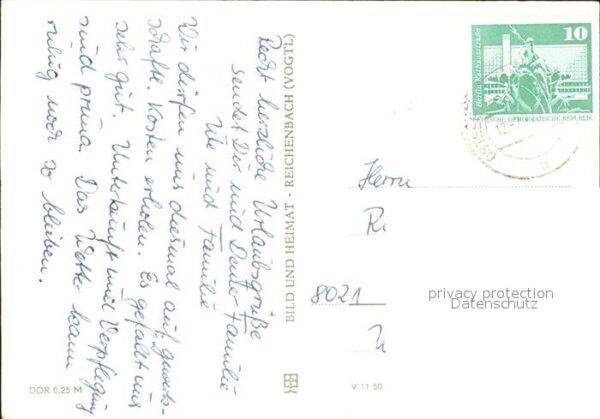 Recht herzliche Urlaubsgrüße
sendet Dir und Deiner Familie
Ute und Familie
Wir dürfen uns diesmal auf gewerk-
schafts. Kosten erholen. Es gefällt uns
sehr gut. Unterkunft und Verpflegung
sind prima. Das Wetter kann
ruhig noch so bleiben.
DDR 0,25 M
BILD UND HEIMAT · REICHENBACH (VOGTL)
V 11 50
10
Berlin, Rathausstraße
DEUTSCHE DEMOKRATISCHE REPUBLIK
12.-7
Herrn
R
8021
privacy protection
Datenschutz